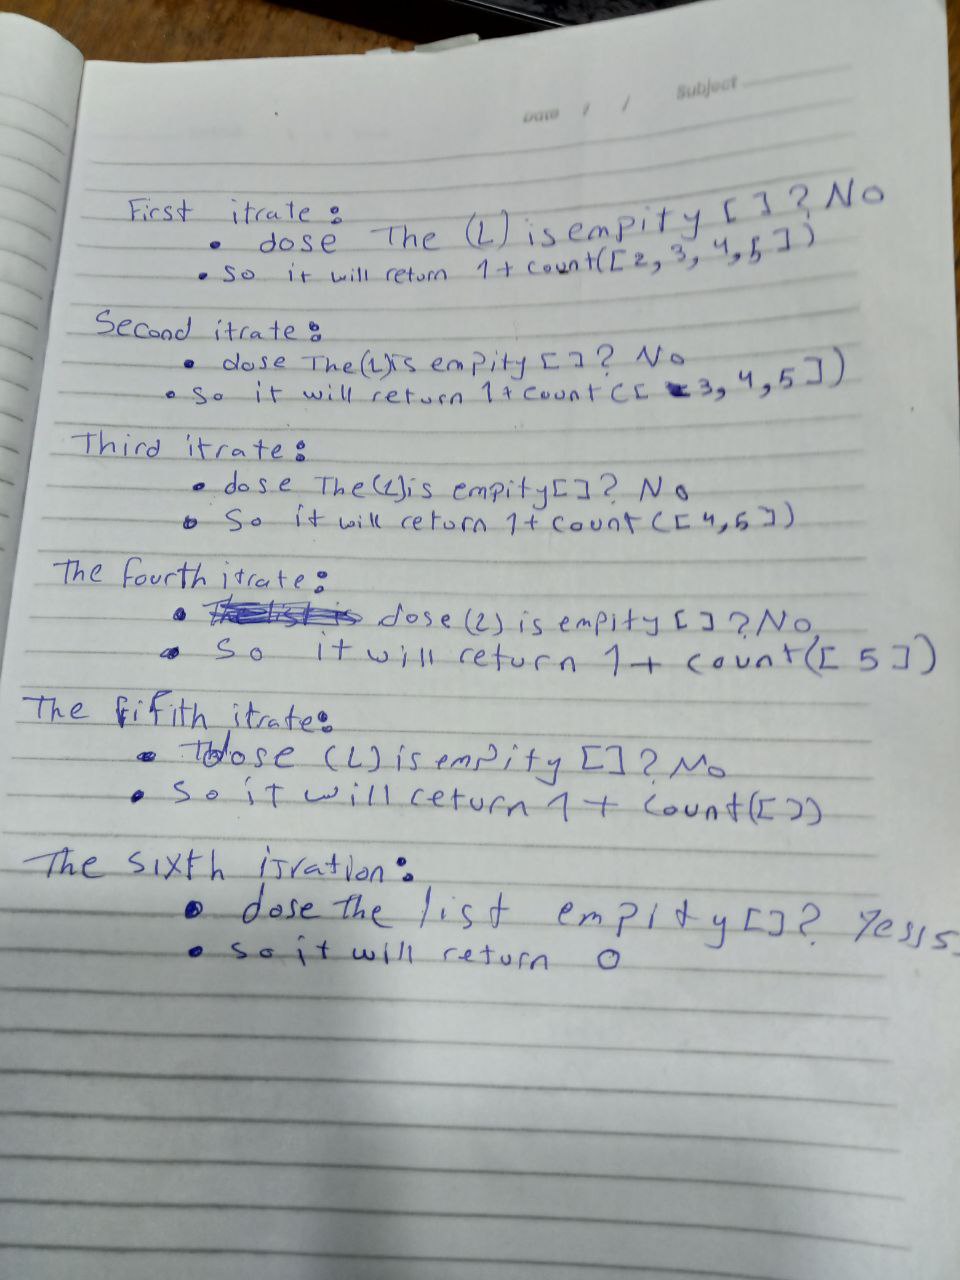 Date / / Subject
First itrate:
• dose The (L) is empity []? No
• so it will return 1+ count([2, 3, 4, 5])
Second itrate:
• dose The (L) is empity []? No
• so it will return 1+ count([3, 4, 5])
Third itrate:
• dose The (L) is empity []? No
• So it will return 1+ count([4,5])
The fourth itrate:
• dose (L) is empity []? No
• So it will return 1+ count([5])
The fifith itrate:
• dose (L) is empity []? No
• so it will return 1+ count([])
The sixth itration:
• dose the list empity []? Yesss
• so it will return 0